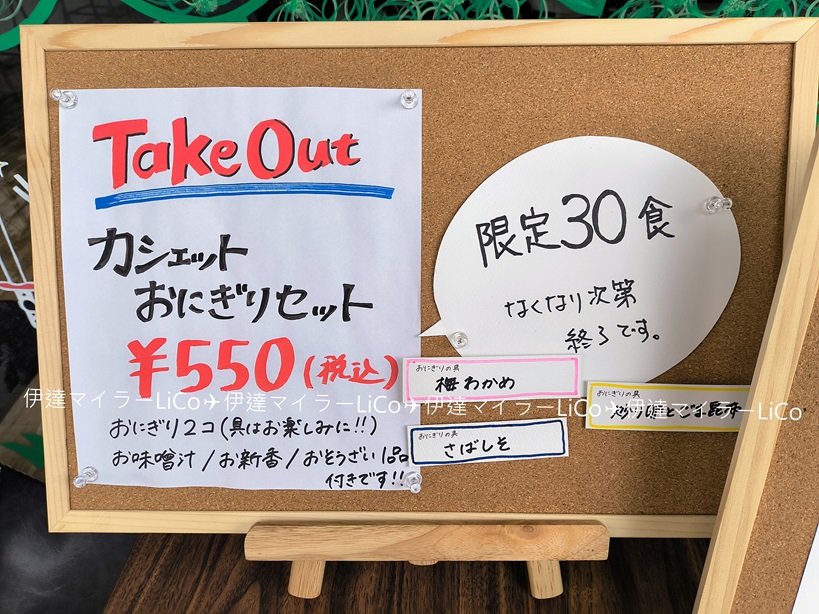 Take Out
カシェット
おにぎりセット
¥550(税込)
おにぎり2コ(具はお楽しみに!!)
お味噌汁/お新香/おそうざい1品
付きです!!
限定30食
なくなり次第
終了です。
おにぎりの具
梅わかめ
おにぎりの具
さばしそ
おにぎりの具
とごま昆布
伊達マイラーLiCo✈伊達マイラーLiCo✈伊達マイラーLiCo✈伊達マイラーLiCo